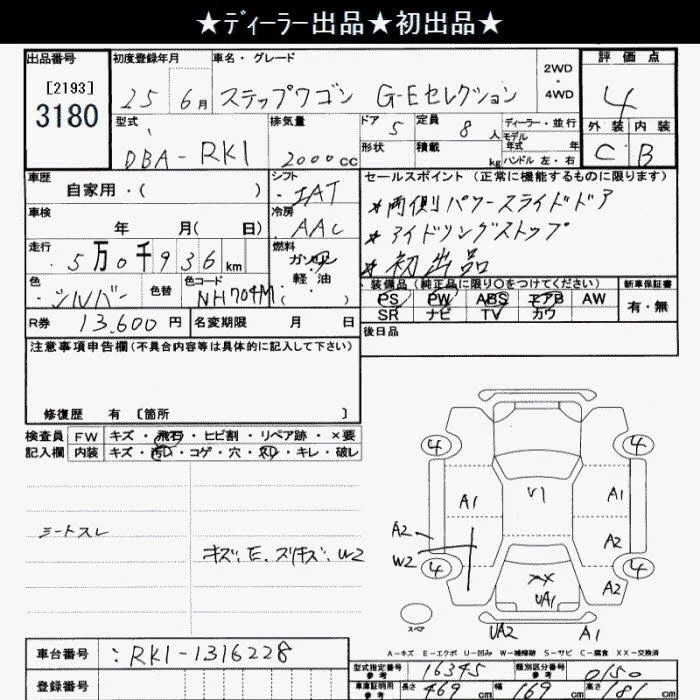 ★ディーラー出品★初出品★
出品番号 初度登録年月 車名・グレード 2WD・4WD 評価点
[2193] 3180 25 6月 ステップワゴン G-Eセレクション 4
型式 排気量 ドア 定員 ディーラー・並行 外装 内装
DBA-RK1 2000cc 5 8人 モデル年式 年 C B
形状 積載 kg ハンドル 左・右
車歴 シフト セールスポイント(正常に機能するものに限ります)
自家用・( ) IAT ★両側パワースライドドア
車検 冷房
年 月( 日) AAC ★アイドリングストップ
走行 燃料
5万0千936km ガソリン ★初出品
軽油
色 色替 色コード ・装備品(純正品に限り○をつけてください) 新車保証書
シルバー NH704M ( ) PS PW ABS エアB AW 有・無
R券 13,600円 名変期限 月 日 SR ナビ TV カワ
注意事項申告欄(不具合内容等は具体的に記入して下さい) 後日品
修復歴 有 〔箇所 〕
検査員 FW キズ・飛石・ヒビ割・リペア跡・×要
記入欄 内装 キズ・汚レ・コゲ・穴・スレ・キレ・破レ
4 4
A1 U1 A1
シートスレ A2 A2
キズ、E、スリキズ、W2 W2 4 4
XX A2
UA1
スペア UA2 A1
A-キズ E-エクボ U-凹み W-補修跡 S-サビ C-腐食 XX-交換済
車台番号 :RK1-1316228
型式指定番号 参考 16345 類別区分番号 参考 0150
登録番号 車庫証明用 参考 長さ 469cm 幅 169cm 高さ 181cm